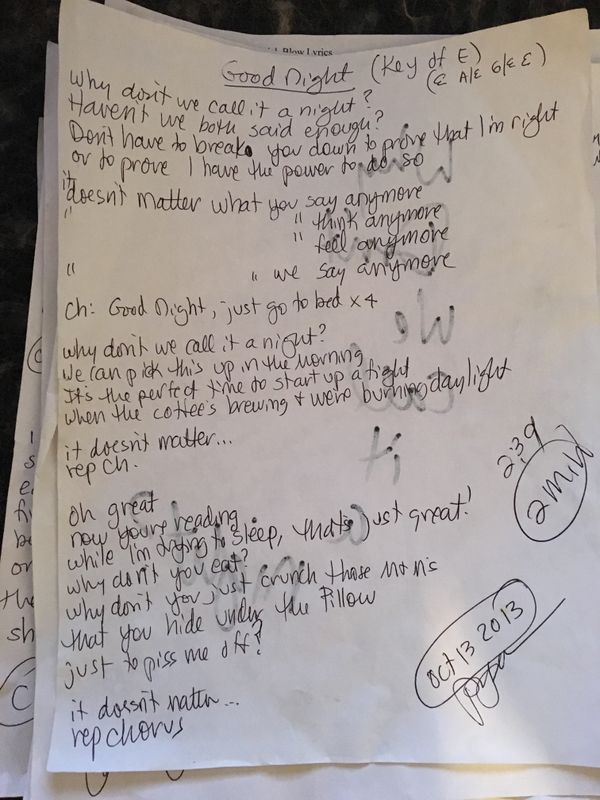 Blow Lyrics
Good Night (Key of E)
(E A/E G/E E)
Why don't we call it a night?
Haven't we both said enough?
Don't have to break you down to prove that I'm right
or to prove I have the power to do so
it doesn't matter what you say anymore
" " think anymore
" feel anymore
" " we say anymore
Ch: Good Night, just go to bed x 4
why don't we call it a night?
We can pick this up in the morning
It's the perfect time to start up a fight
when the coffee's brewing + we're burning daylight
it doesn't matter...
rep ch.
2:39
2 Mix
oh great
now you're reading
while I'm trying to sleep, that's just great!
why don't you eat?
why don't you just crunch those M n M's
that you hide under the pillow
just to piss me off?
Oct 13 2013
it doesn't matter...
rep chorus